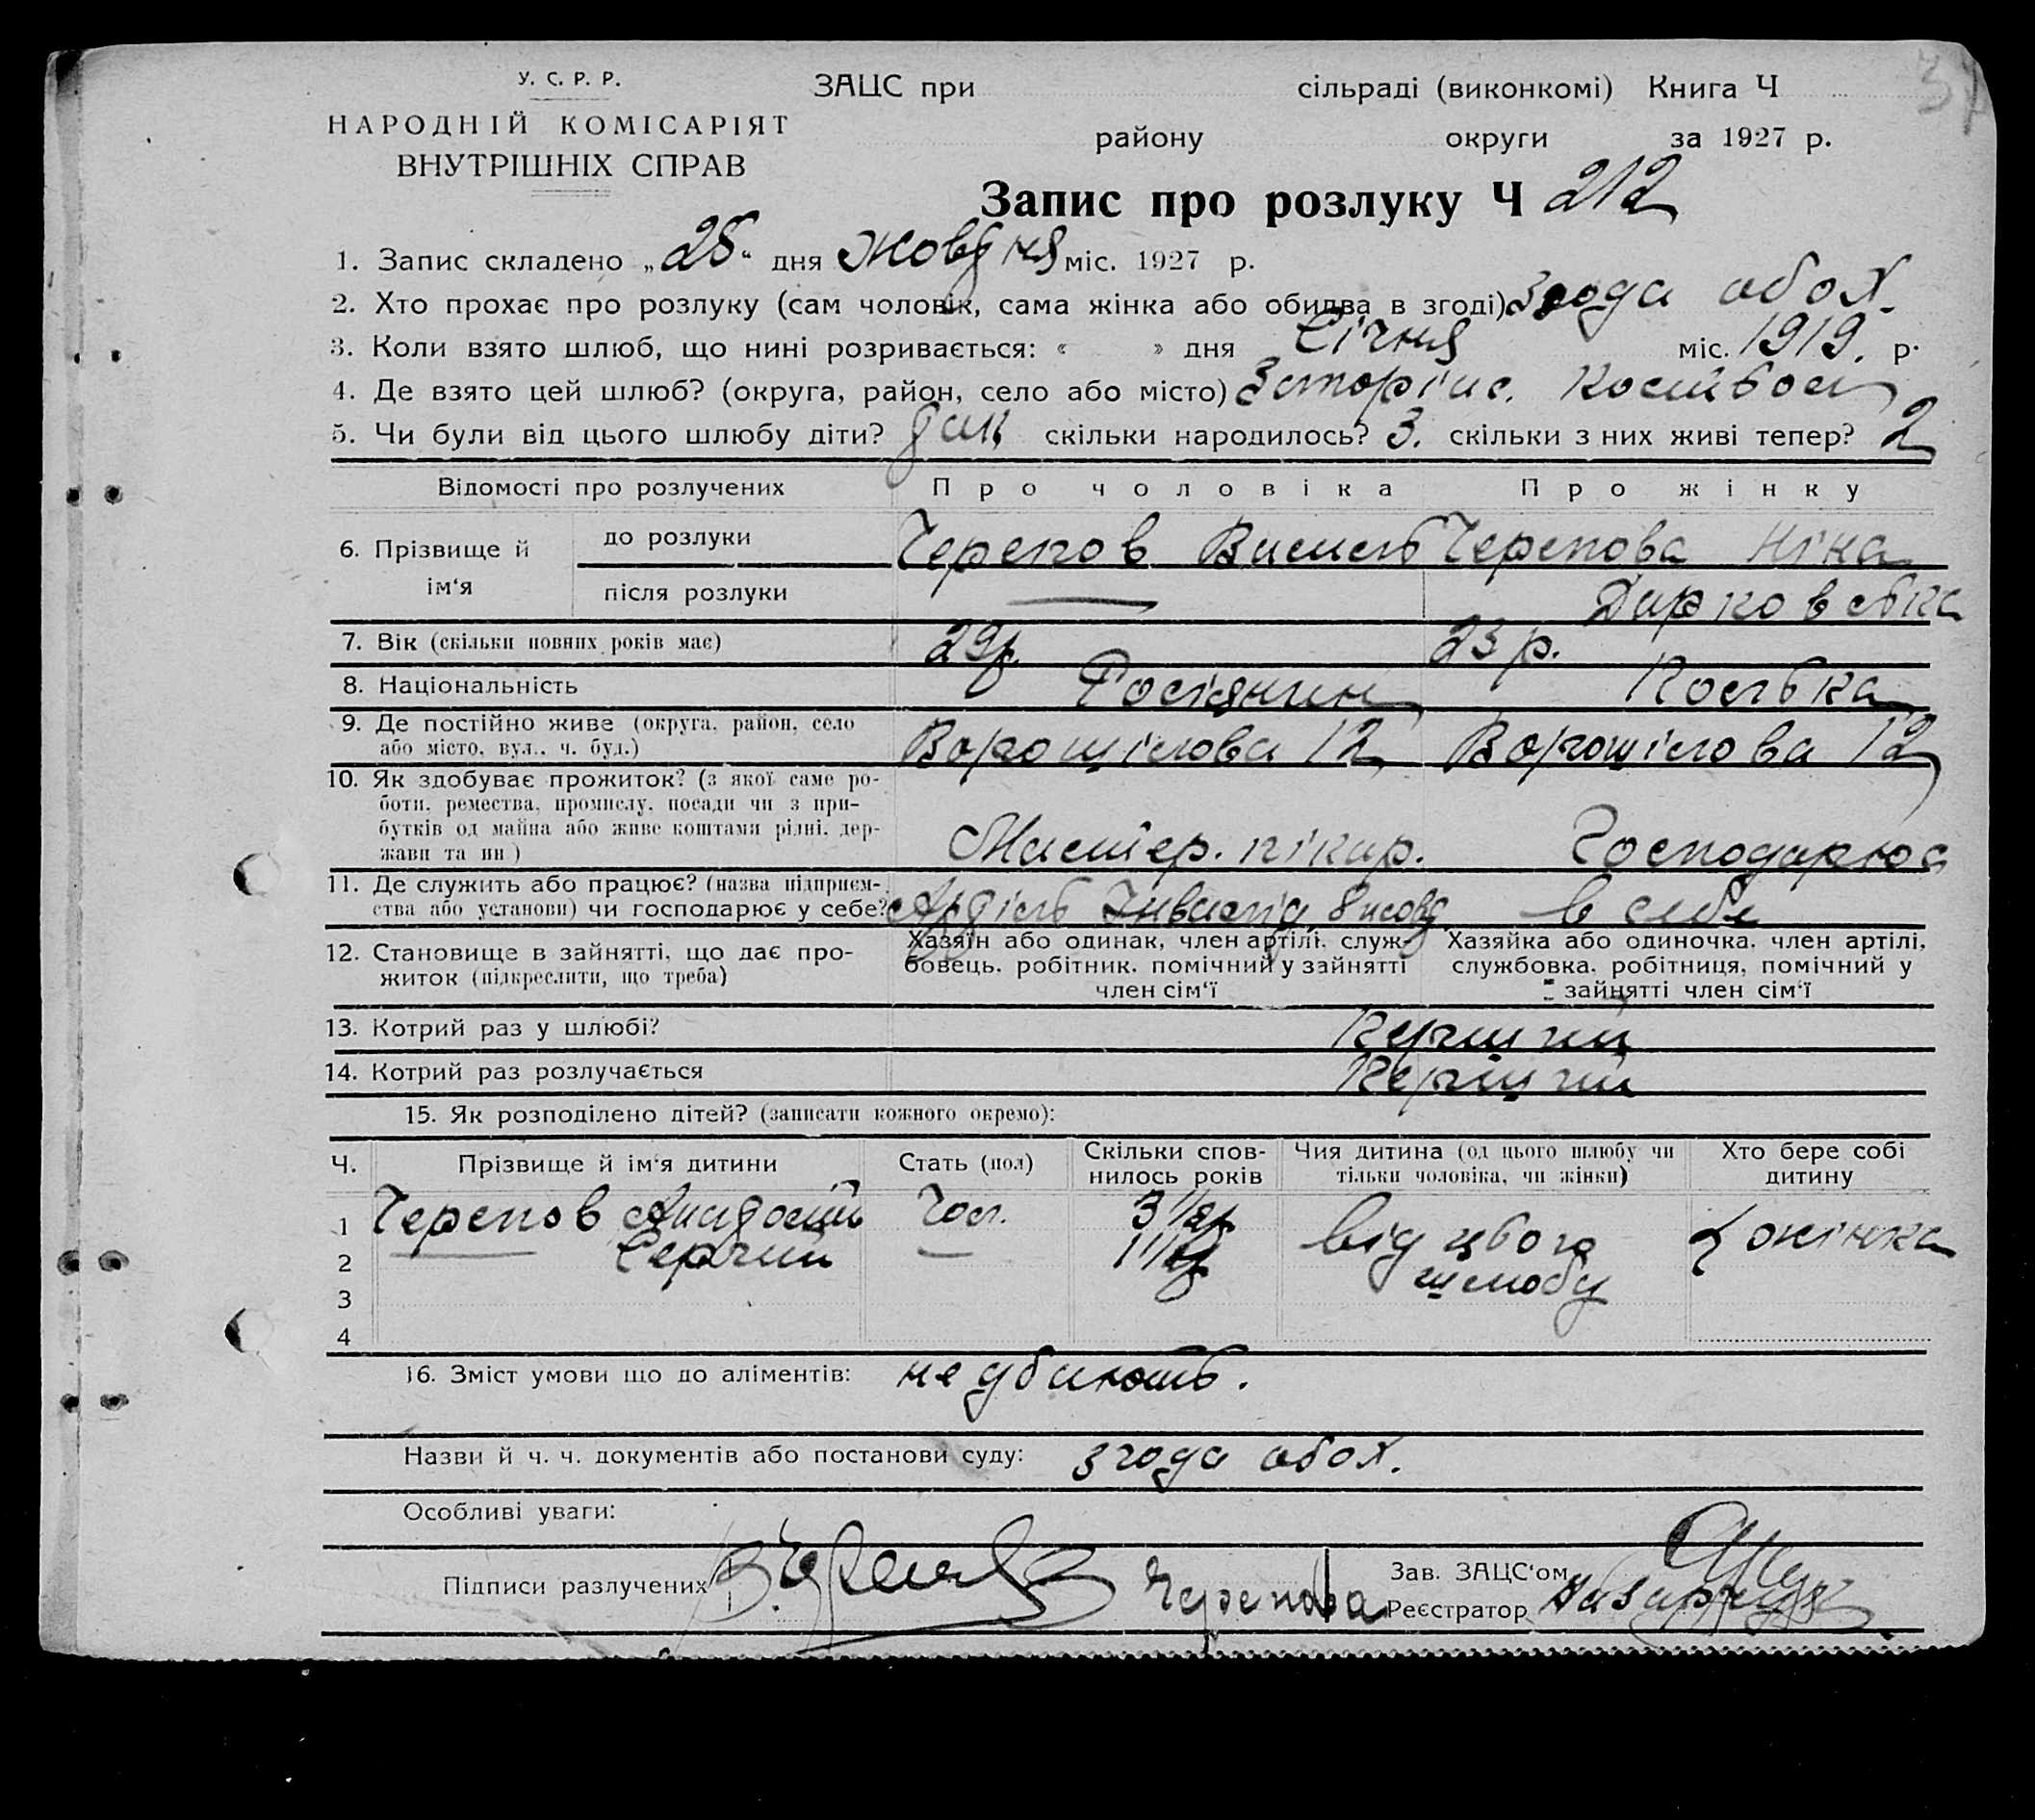 У. С. Р. Р.
НАРОДНІЙ КОМІСАРІЯТ
ВНУТРІШНІХ СПРАВ
ЗАЦС при сільраді (виконкомі) Книга Ч
району округи за 1927 р.
Запис про розлуку Ч 212
1. Запис складено „25" дня жовтня міс. 1927 р.
2. Хто прохає про розлуку (сам чоловік, сама жінка або обидва в згоді) згода обох.
3. Коли взято шлюб, що нині розривається: « » дня Січня міс. 1919. р.
4. Де взято цей шлюб? (округа, район, село або місто)
5. Чи були від цього шлюбу діти? скільки народилось? 3. скільки з них живі тепер? 2
Відомості про розлучених Про чоловіка Про жінку
6. Прізвище й ім'я
до розлуки Черепов Черепова Ніна
після розлуки
7. Вік (скільки повних років має) 29р. 23 р.
8. Національність Росіянин
9. Де постійно живе (округа, район, село або місто, вул., ч. буд.) Ворошілова 12 Ворошілова 12
10. Як здобуває прожиток? (з якої саме ро-
боти, ремества, промислу, посади чи з при-
бутків од майна або живе коштами рідні, дер-
жави та ин) Господарює
11. Де служить або працює? (назва підприєм-
ства або установи) чи господарює у себе? в себе
12. Становище в зайнятті, що дає про-
житок (підкреслити, що треба)
Хазяїн або одинак, член артілі, служ-
бовець, робітник, помічний у зайнятті
член сім'ї
Хазяйка або одиночка, член артілі,
службовка, робітниця, помічний у
зайнятті член сім'ї
13. Котрий раз у шлюбі? Перший
14. Котрий раз розлучається Перший
15. Як розподілено дітей? (записати кожного окремо):
Ч. Прізвище й ім'я дитини Стать (пол) Скільки спов-
нилось років Чия дитина (од цього шлюбу чи
тільки чоловіка, чи жінки) Хто бере собі
дитину
1 Черепов Чол. 3 1/2р Від цього шлюбу жінка
2 Сергий
3
4
16. Зміст умови що до аліментів:
Назви й ч. ч. документів або постанови суду: згода обох.
Особливі уваги:
Підписи разлучених Черепова
Зав. ЗАЦС'ом
Реєстратор